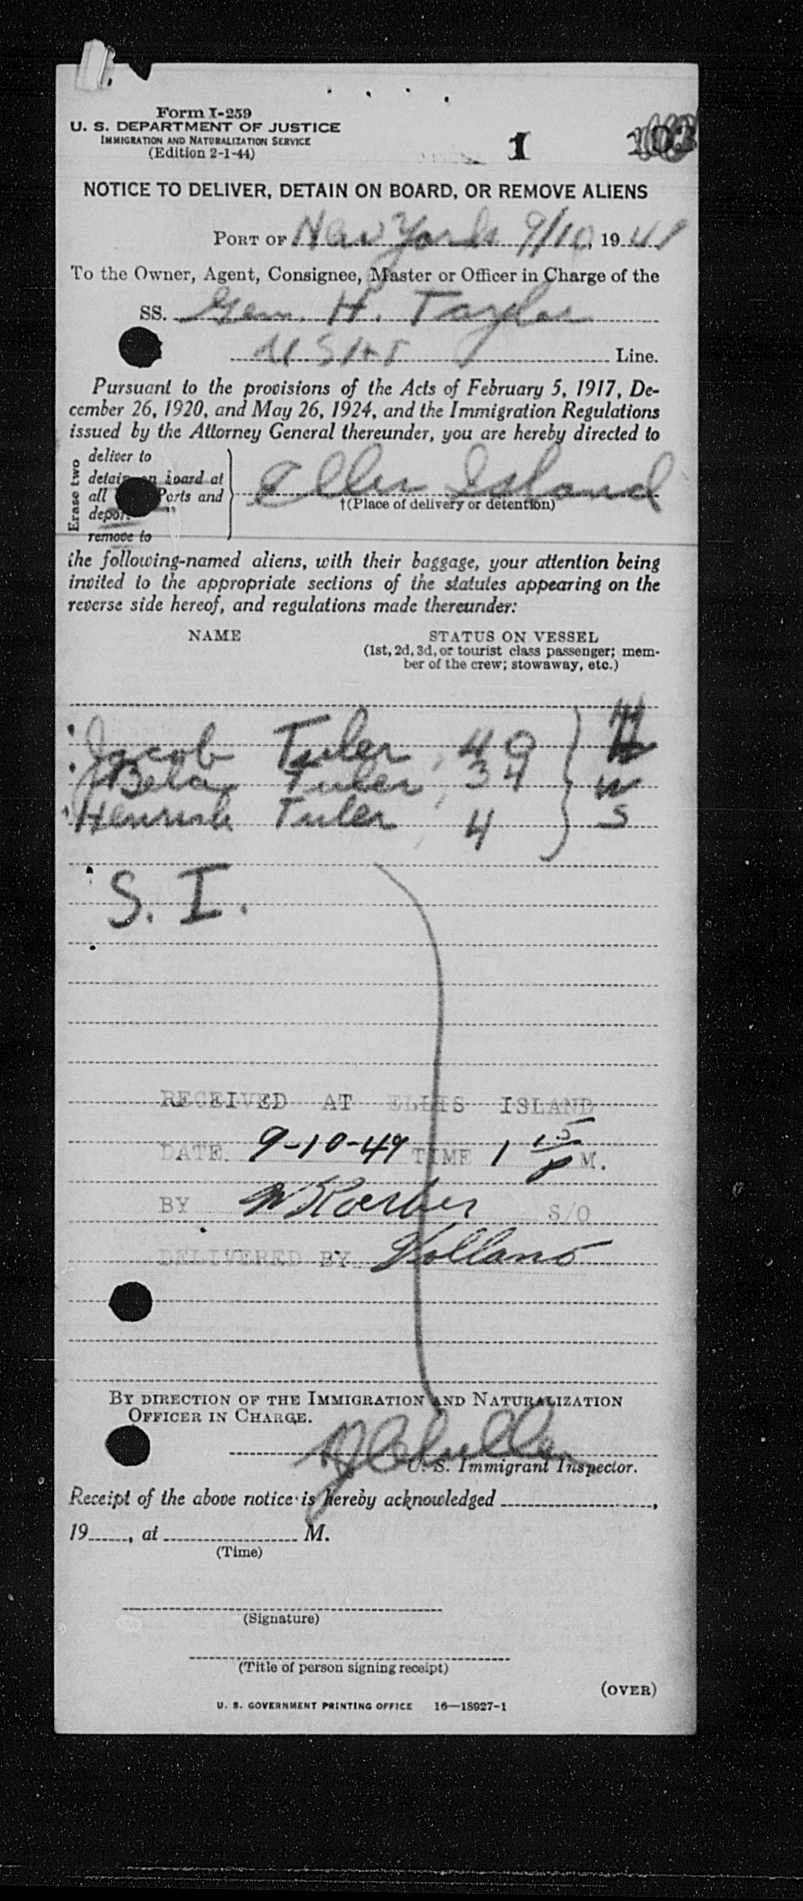 Form I-259
U. S. DEPARTMENT OF JUSTICE
IMMIGRATION AND NATURALIZATION SERVICE
(Edition 2-1-44)
1
103
NOTICE TO DELIVER, DETAIN ON BOARD, OR REMOVE ALIENS
PORT OF New York 9/10, 1949
To the Owner, Agent, Consignee, Master or Officer in Charge of the
SS. Gen. H. Taylor
Line.
Pursuant to the provisions of the Acts of February 5, 1917, De-
cember 26, 1920, and May 26, 1924, and the Immigration Regulations
issued by the Attorney General thereunder, you are hereby directed to
Erase two
deliver to
detain on board at
all Ports and
remove to
Ellis Island
†(Place of delivery or detention)
the following-named aliens, with their baggage, your attention being
invited to the appropriate sections of the statutes appearing on the
reverse side hereof, and regulations made thereunder:
NAME STATUS ON VESSEL
(1st, 2d, 3d, or tourist class passenger; mem-
ber of the crew; stowaway, etc.)
Jacob Tuler, 40 H
Bela Tuler, 34 W
Henrich Tuler, 4 S
S. I.
RECEIVED AT ELLIS ISLAND
DATE 9-10-49 TIME 1 15 P M.
BY S/O
DELIVERED BY
BY DIRECTION OF THE IMMIGRATION AND NATURALIZATION
OFFICER IN CHARGE.
U. S. Immigrant Inspector.
Receipt of the above notice is hereby acknowledged
19 , at M.
(Time)
(Signature)
(Title of person signing receipt)
(OVER)
U. S. GOVERNMENT PRINTING OFFICE 16—18927-1